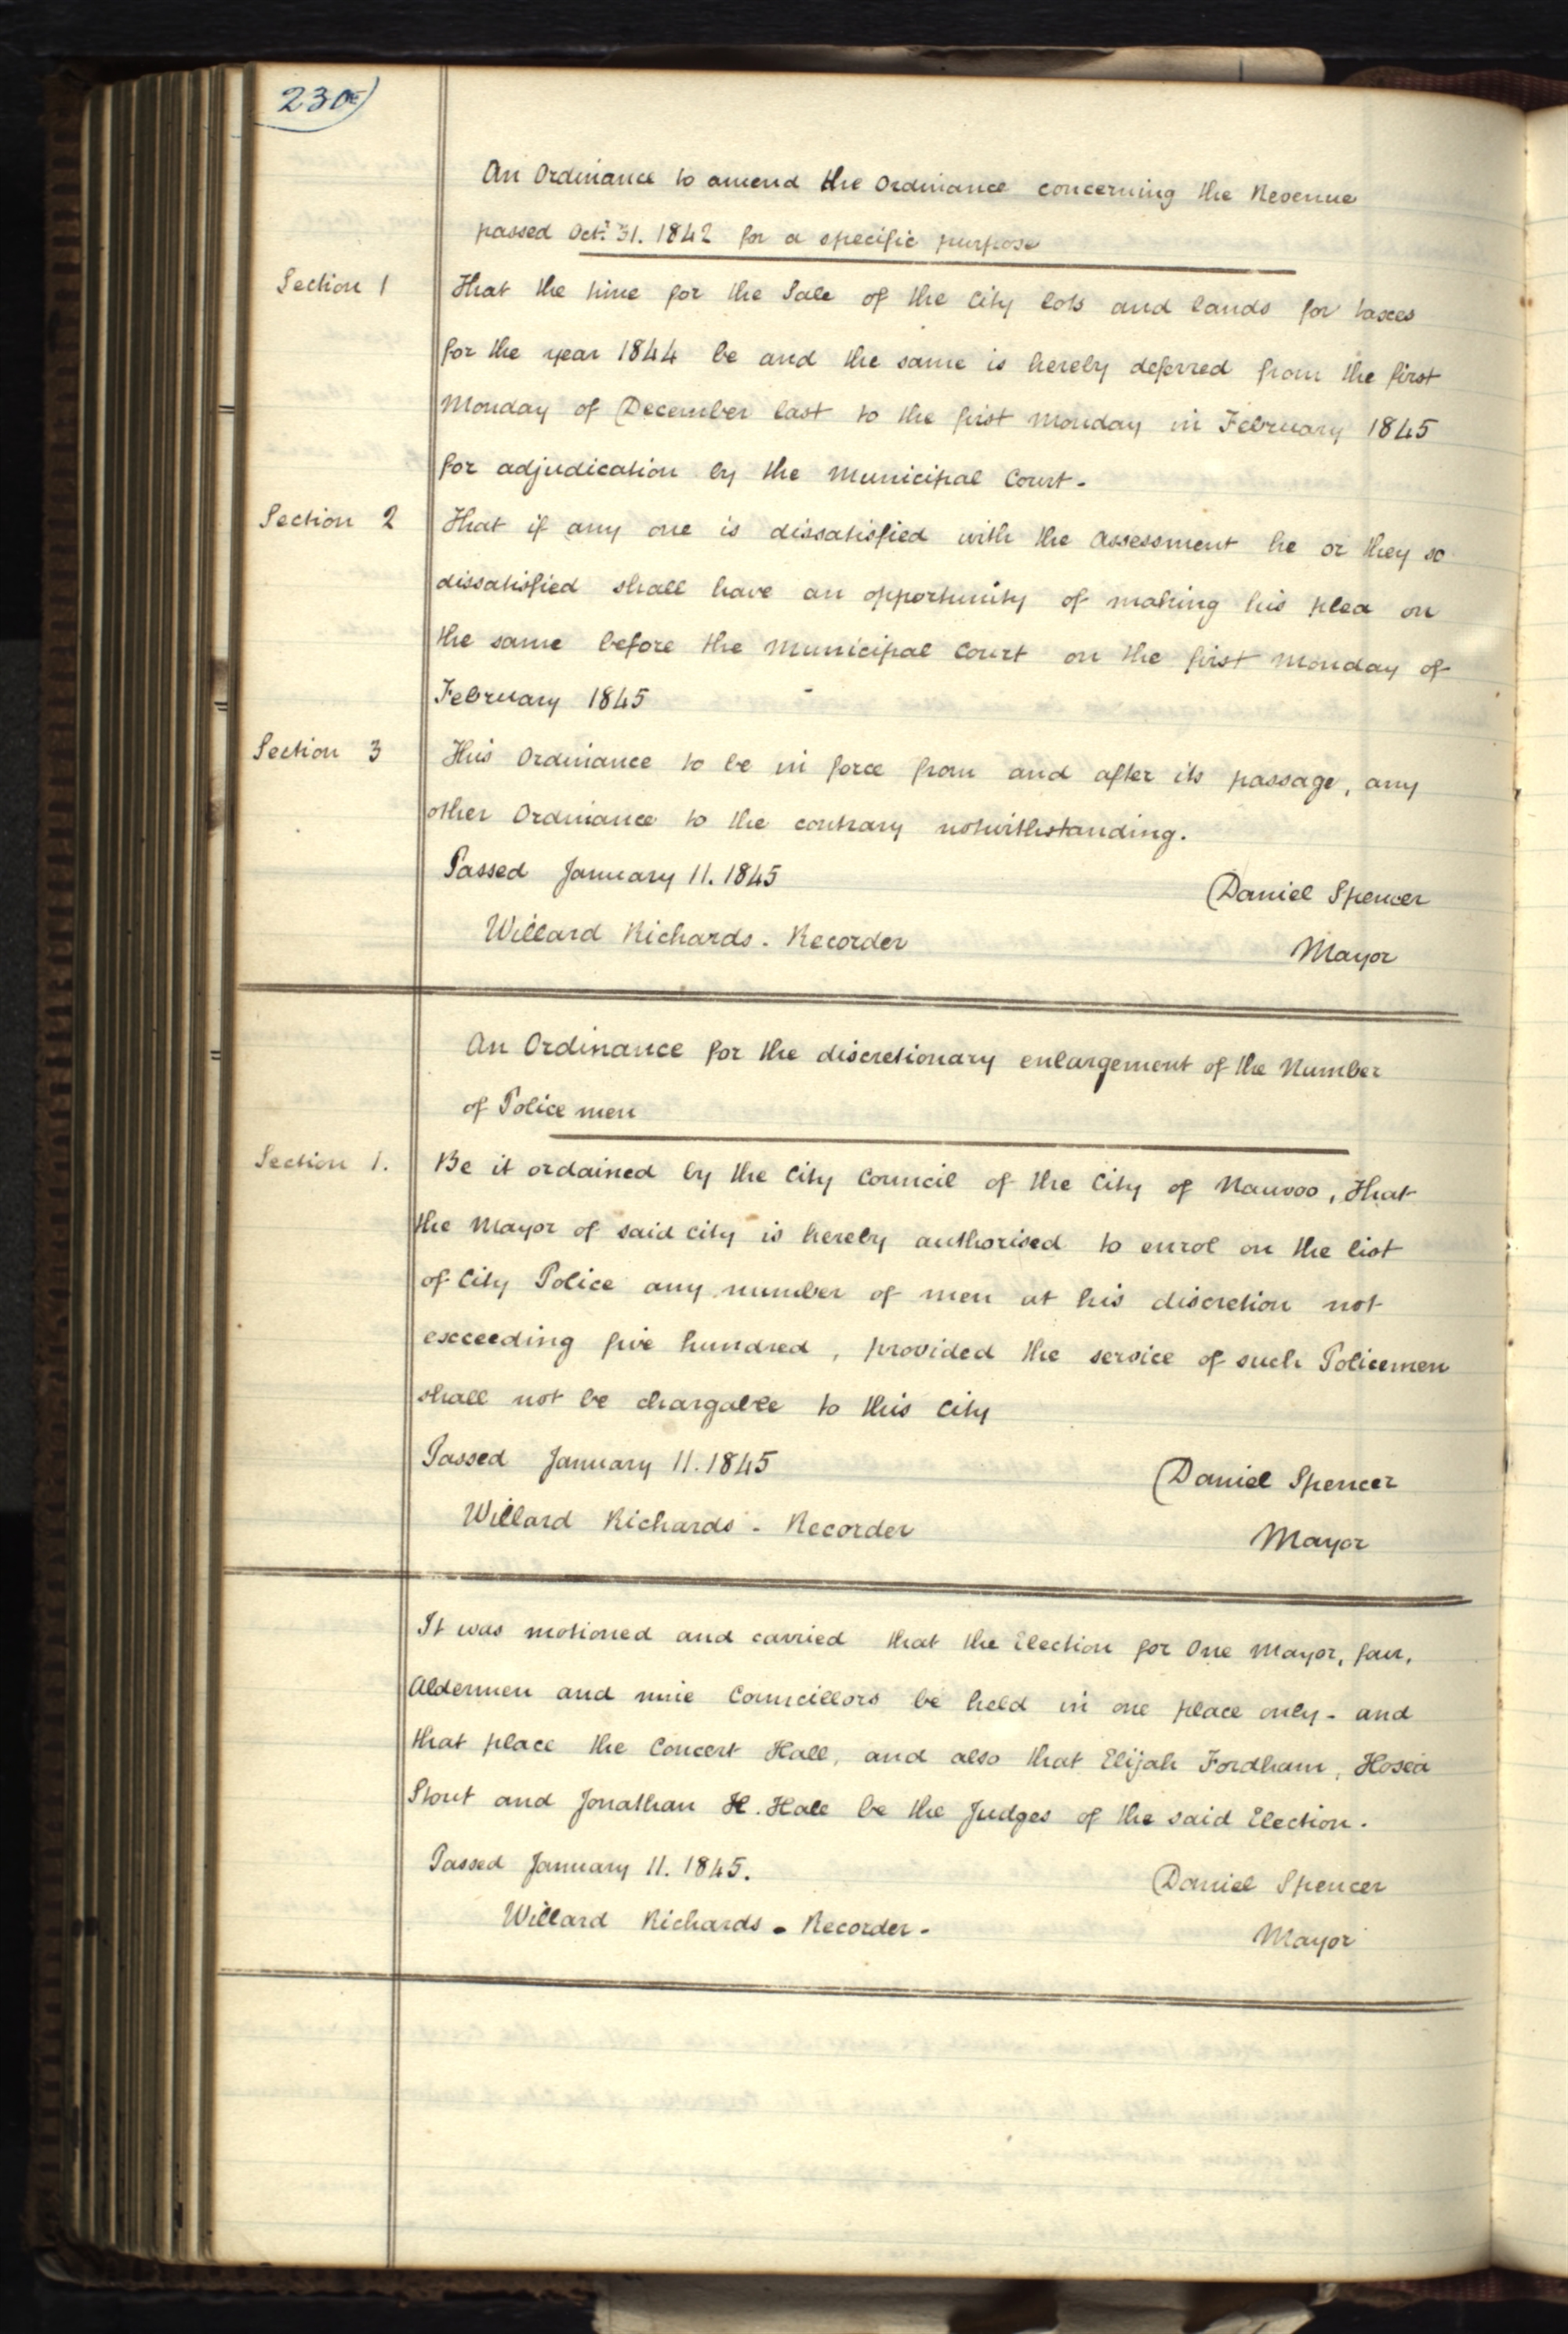 230
An Ordinance to amend the Ordinance concerning the Revenue
passed Oct. 31. 1842 for a specific purpose
Section 1 That the time for the Sale of the City lots and lands for taxes
for the year 1844 be and the same is hereby deferred from the first
Monday of December last to the first Monday in February 1845
for adjudication by the Municipal Court-
Section 2 That if any one is dissatisfied with the Assessment he or they so
dissatisfied shall have an opportunity of making his plea on
the same before the Municipal Court on the first Monday of
February 1845
Section 3 This Ordinance to be in force from and after its passage, any
other Ordinance to the contrary notwithstanding.
Passed January 11. 1845
Daniel Spencer
Willard Richards. Recorder
Mayor
An Ordinance for the discretionary enlargement of the Number
of Police men
Section 1. Be it ordained by the City Council of the City of Nauvoo, That
the Mayor of said city is hereby authorised to enrol on the list
of City Police any number of men at his discretion not
exceeding five hundred, provided the service of such Policemen
shall not be chargable to this City
Passed January 11. 1845
Daniel Spencer
Willard Richards - Recorder
Mayor
It was motioned and carried that the Election for One Mayor, four,
Aldermen and nine Councillors be held in one place only - and
that place the Concert Hall, and also that Elijah Fordham, Hosea
Stout and Jonathan H. Hale be the Judges of the said Election.
Passed January 11. 1845.
Daniel Spencer
Willard Richards. Recorder-
Mayor